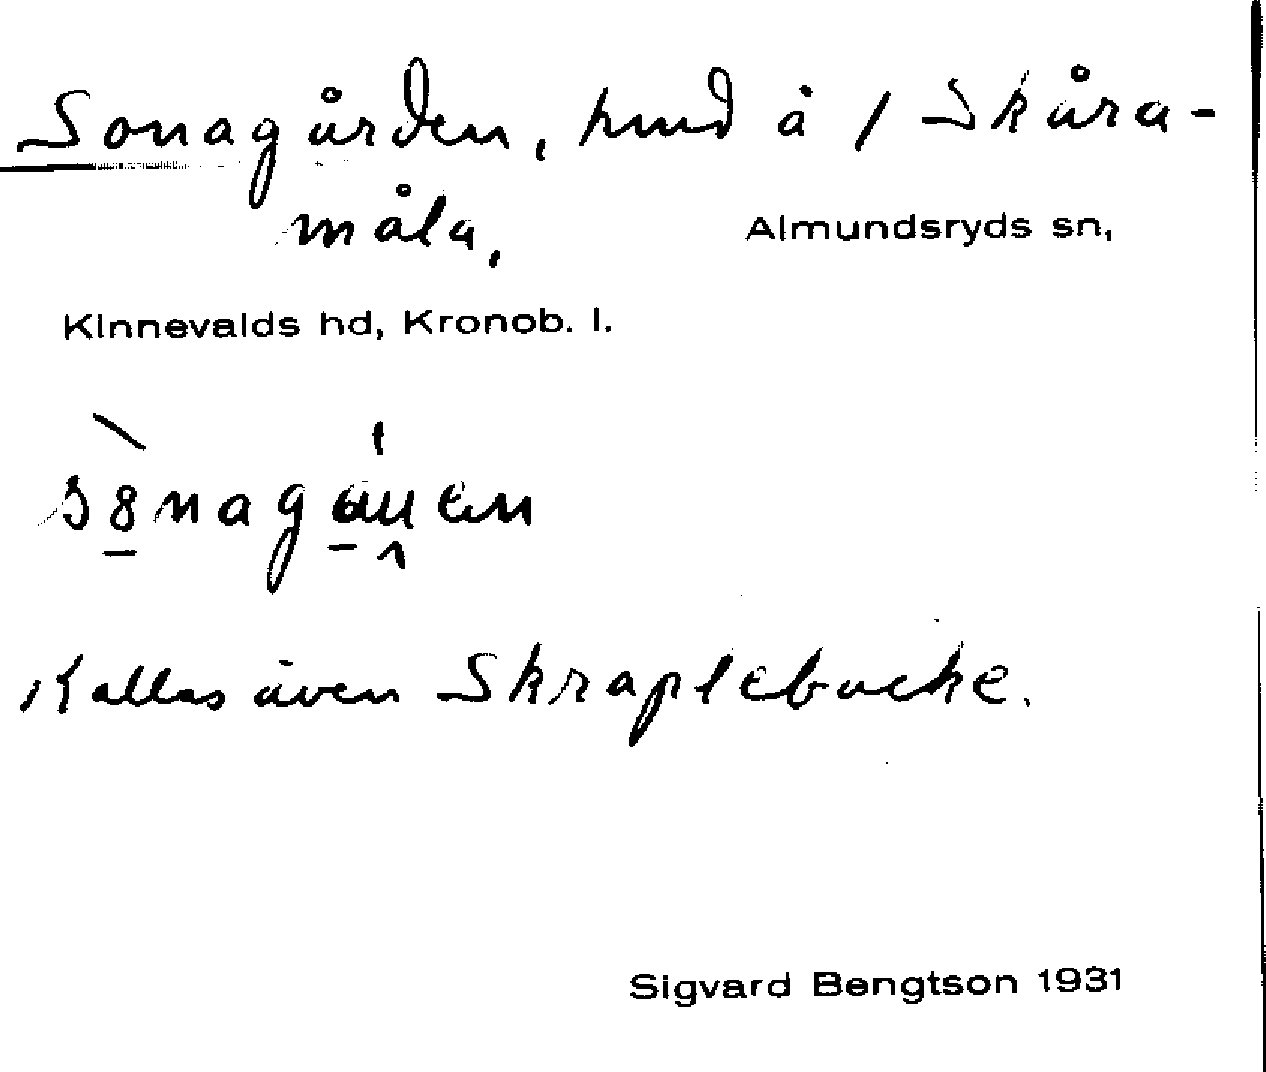 Sonagården, hmd å 1 Skåra-
måla,
Almundsryds sn,
Kinnevalds hd, Kronob. l.
Kallas även Skraplebacke.
Sigvard Bengtson 1931